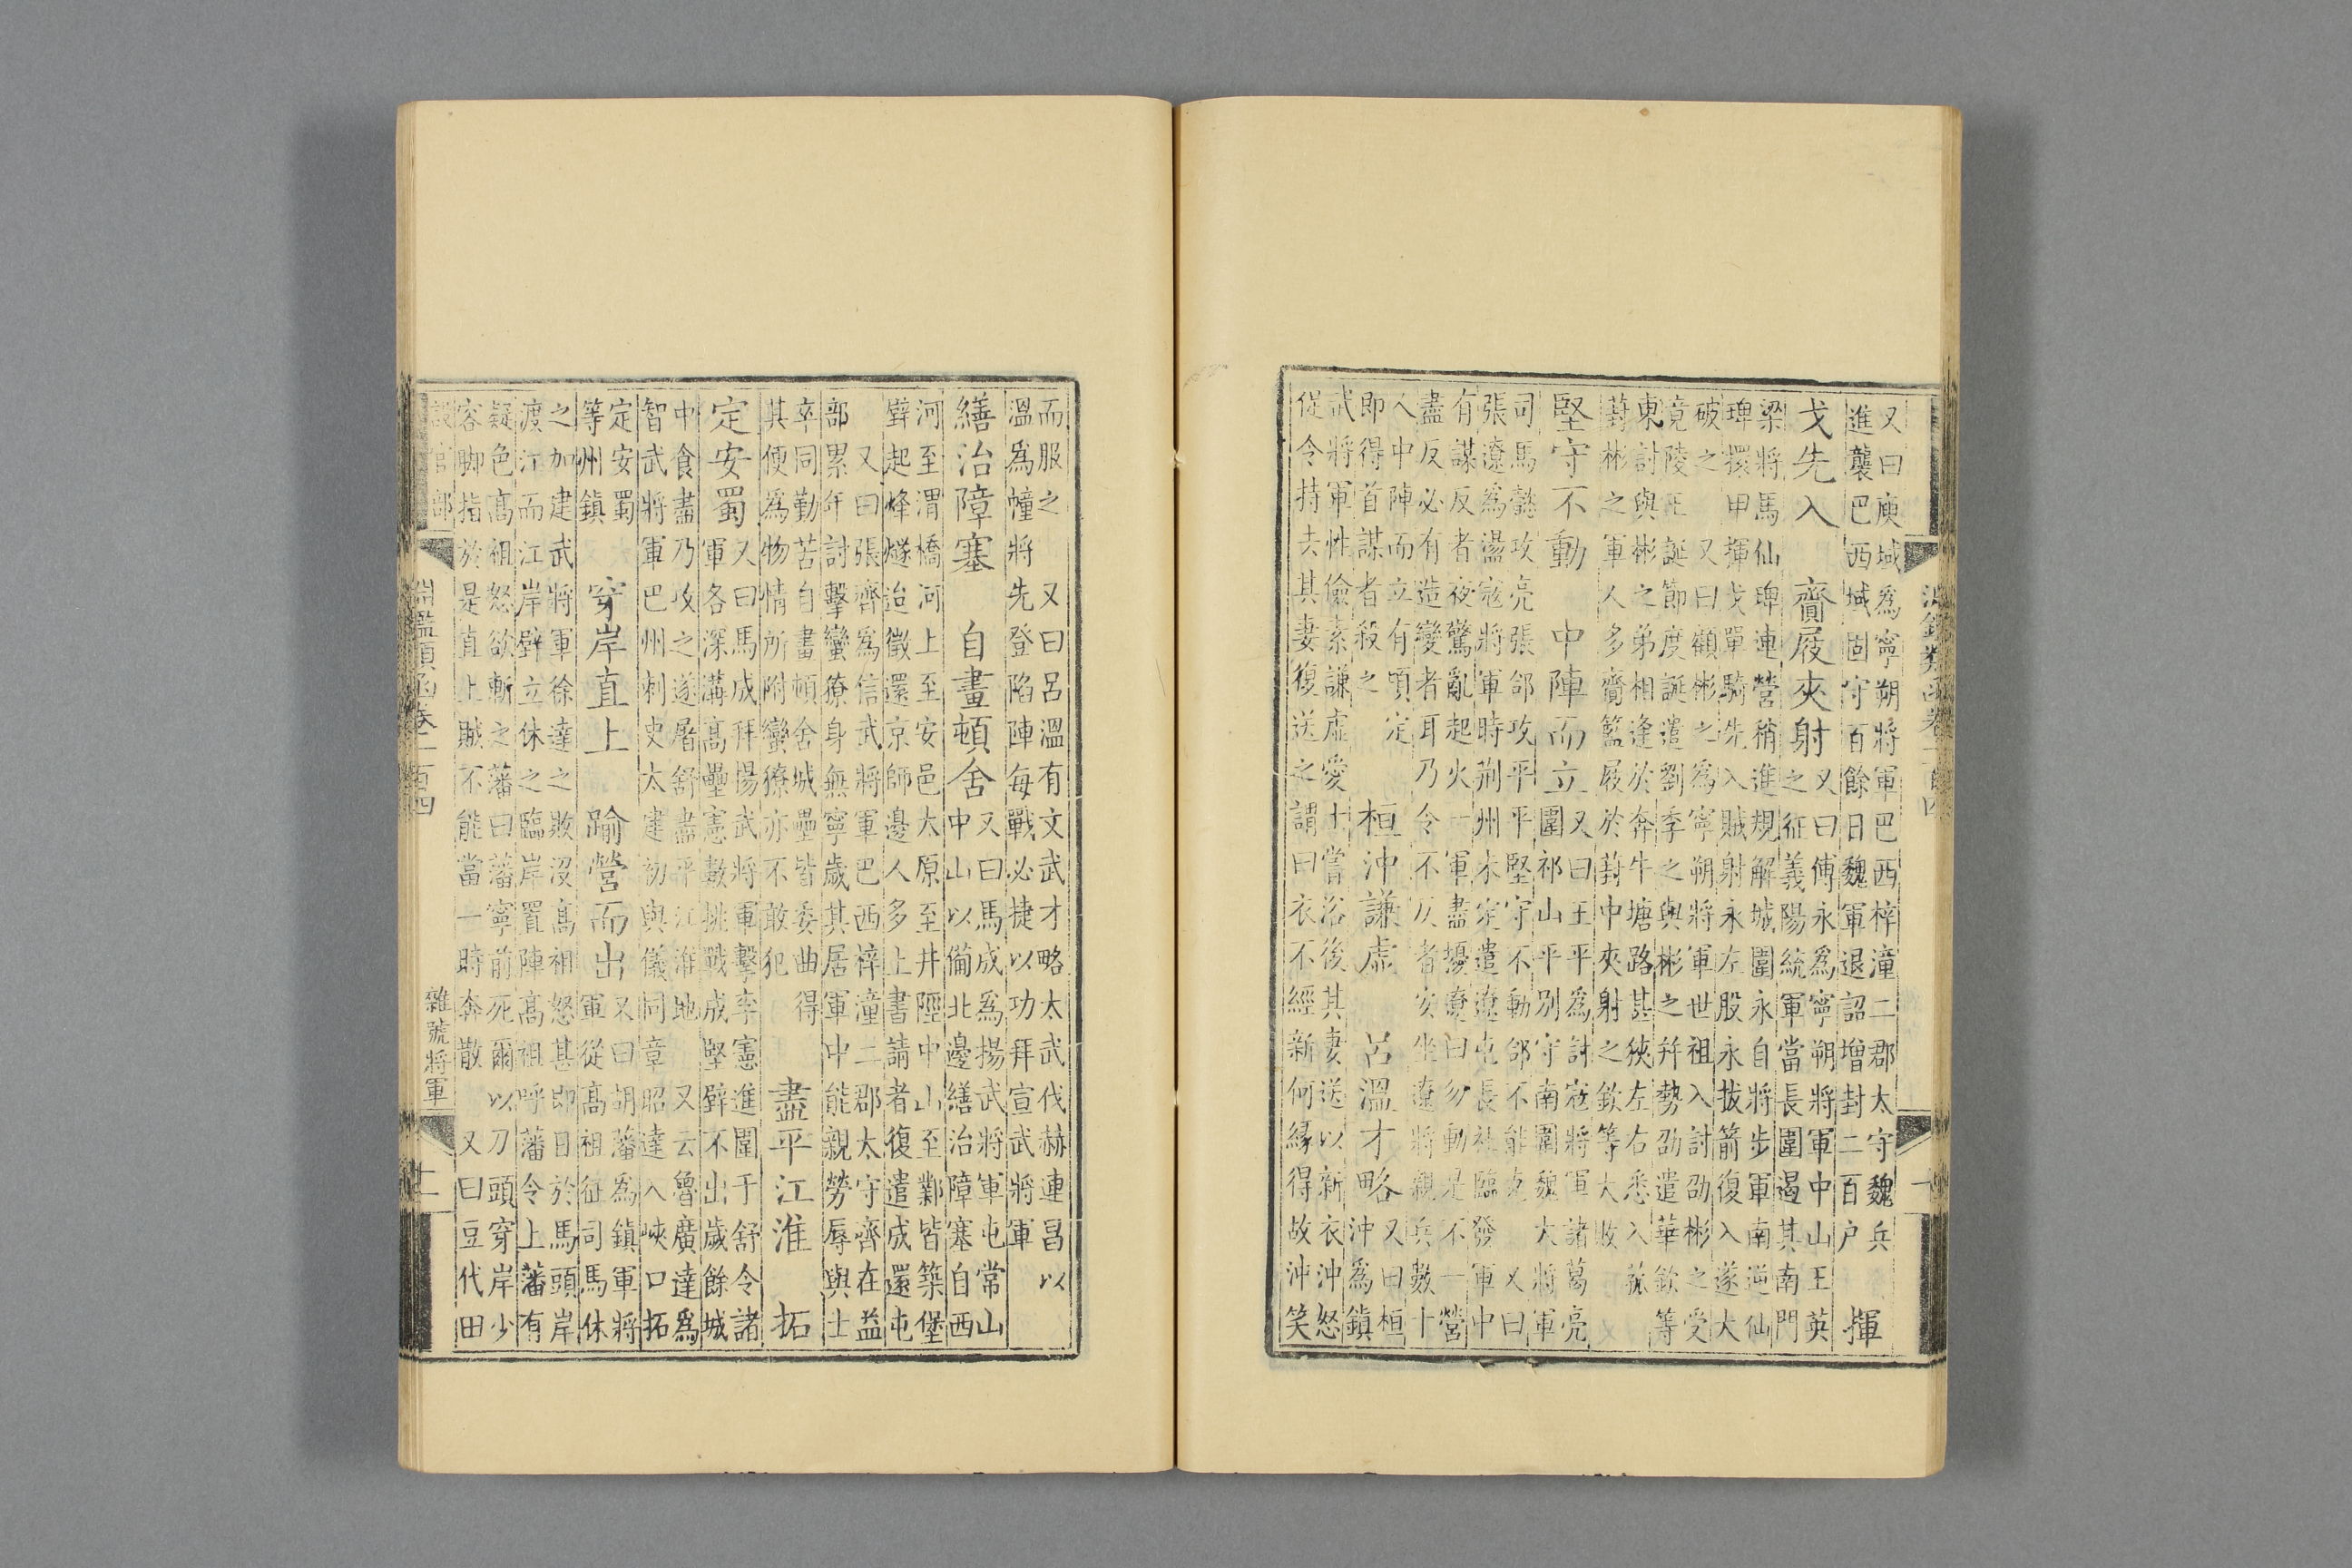 淵鑑類函卷一百四 十
又曰庾域為寧朔將軍巴西梓潼二郡太守魏兵
進襲巴西域固守百餘日魏軍退詔增封二百户 揮
戈先入 齎屐夾射
又曰傅永為寧朔將軍中山王英
之征義陽統軍當長圍遏其南門
梁將馬仙琕連營稍進規解城圍永自將步軍南逆仙
琕擐甲揮戈單騎先入賊射永左股永拔箭復入遂大
破之 又曰顧彬之為寧朔將軍世祖入討劭彬之受
竟陵王誕節度誕遣劉季之與彬之幷勢劭遣華欽等
東討與彬之弟相逢於奔牛塘路甚狹左右悉入菰
葑彬之軍人多齎籃屐於葑中夾射之欽等大敗
堅守不動 中陣而立
又曰王平為討寇將軍諸葛亮
圍祁山平別守南圍魏大將軍
司馬懿攻亮張郃攻平平堅守不動郃不能克 又曰
張遼為盪寇將軍時荆州未定遣遼屯長社臨發軍中
有謀反者夜驚亂起火一軍盡擾遼曰勿動是不一營
盡反必有造變者耳乃令不反者安坐遼將親兵數十
人中陣而立有頃定
即得首謀者殺之
桓沖謙虛 呂溫才略
又曰桓
沖為鎮
武將軍性儉素謙虛愛士嘗浴後其妻送以新衣沖怒
促令持去其妻復送之謂曰衣不經新何緣得故沖笑
而服之 又曰呂溫有文武才略太武伐赫連昌以
溫為幢將先登陷陣每戰必捷以功拜宣武將軍
繕治障塞 自畫頓舍
又曰馬成為揚武將軍屯常山
中山以備北邊繕治障塞自西
河至渭橋河上至安邑大原至井陘中山至鄴皆築堡
壁起烽燧迨徵還京師邊人多上書請者復遣成還屯
又曰張齊為信武將軍巴西梓潼二郡太守齊在益
部累年討擊蠻獠身無寧歲其居軍中能親勞辱與士
卒同勤苦自畫頓舍城壘皆委曲得
其便為物情所附蠻獠亦不敢犯
盡平江淮 拓
定安蜀
又曰馬成拜揚武將軍擊李憲進圍于舒令諸
軍各深溝高壘憲數挑戰成堅壁不出歲餘城
中食盡乃攻之遂屠舒盡平江淮地 又云魯廣達為
智武將軍巴州刺史太建初與儀同章昭達入峽口拓
定安蜀
等州鎮
穿岸直上 踰營而出
又曰胡藩為鎮軍將
軍從高祖征司馬休
之加建武將軍徐達之敗沒高祖怒甚即日於馬頭岸
渡江而江岸壁立休之臨岸置陣高祖呼藩令上藩有
疑色高祖怒欲斬之藩曰藩寧前死爾以刀頭穿岸少
容脚指於是直上賊不能當一時奔散 又曰豆代田
設官部 淵鑑類函卷一百四 雜號將軍 十一